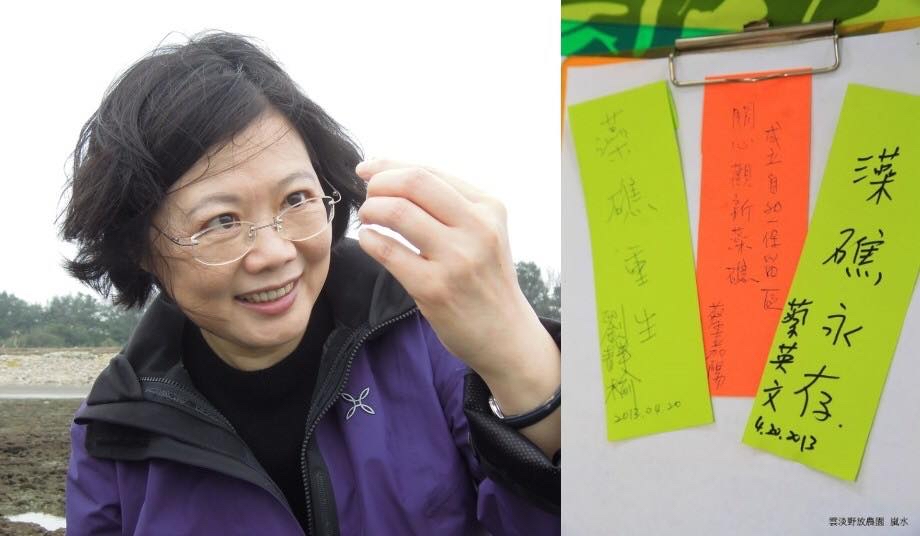 藻礁重生
2013.04.20
成立自然保留區
關心觀新藻礁
藻礁永存.
蔡英文
4.20.2013
雲淡野放農園 嵐水